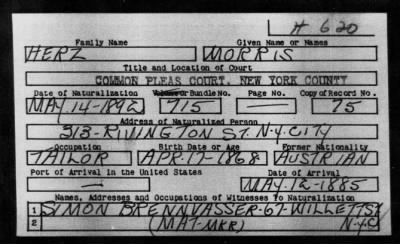 H 620
Family Name Given Name or Names
HERZ MORRIS
Title and Location of Court
COMMON PLEAS COURT, NEW YORK COUNTY
Date of Naturalization Volume or Bundle No. Page No. Copy of Record No.
MAY-14-1892 715 — 75
Address of Naturalized Person
313-RIVINGTON ST. N.Y. CITY
Occupation Birth Date or Age Former Nationality
TAILOR APR-17-1868 AUSTRIAN
Port of Arrival in the United States Date of Arrival
— MAY-12-1885
Names, Addresses and Occupations of Witnesses To Naturalization
1 SIMON BRENNVASSER-67-WILLETT ST
2 (MAT-MKR) N.Y.C